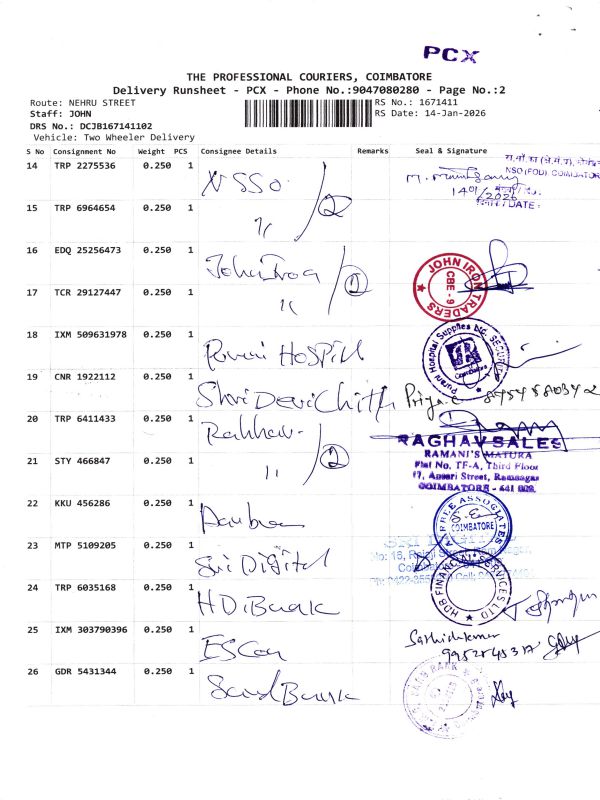 PCX
THE PROFESSIONAL COURIERS, COIMBATORE
Delivery Runsheet - PCX - Phone No.:9047080280 - Page No.:2
Route: NEHRU STREET
RS No.: 1671411
Staff: JOHN
RS Date: 14-Jan-2026
DRS No.: DCJB167141102
Vehicle: Two Wheeler Delivery
S No Consignment No Weight PCS Consignee Details Remarks Seal & Signature
14 TRP 2275536 0.250 1 NSSO
NSO (FOD) COIMBATOR
14/01/2026
/DATE:
15 TRP 6964654 0.250 1 " 2
16 EDQ 25256473 0.250 1 John Iron
JOHN IRON TRADERS
CBE - 9
17 TCR 29127447 0.250 1 " 1
18 IXM 509631978 0.250 1 Purani Hospitl
Purani Hospital Supplies
SECURITY
Coimbatore
19 CNR 1922112 0.250 1 Shri Devi Chith Priya.C
20 TRP 6411433 0.250 1
RAGHAV SALES
RAMANI'S MATURA
Flat No. TF-A, Third Floor
17, Ansari Street, Ramnagar
COIMBATORE - 641 009.
21 STY 466847 0.250 1 " 2
22 KKU 456286 0.250 1
ASSOCIATES
COIMBATORE
23 MTP 5109205 0.250 1 Sri Digital
24 TRP 6035168 0.250 1 HD Bank
HDB FINANCIAL SERVICES LTD
25 IXM 303790396 0.250 1 ESCon
Sathishkumar
26 GDR 5431344 0.250 1